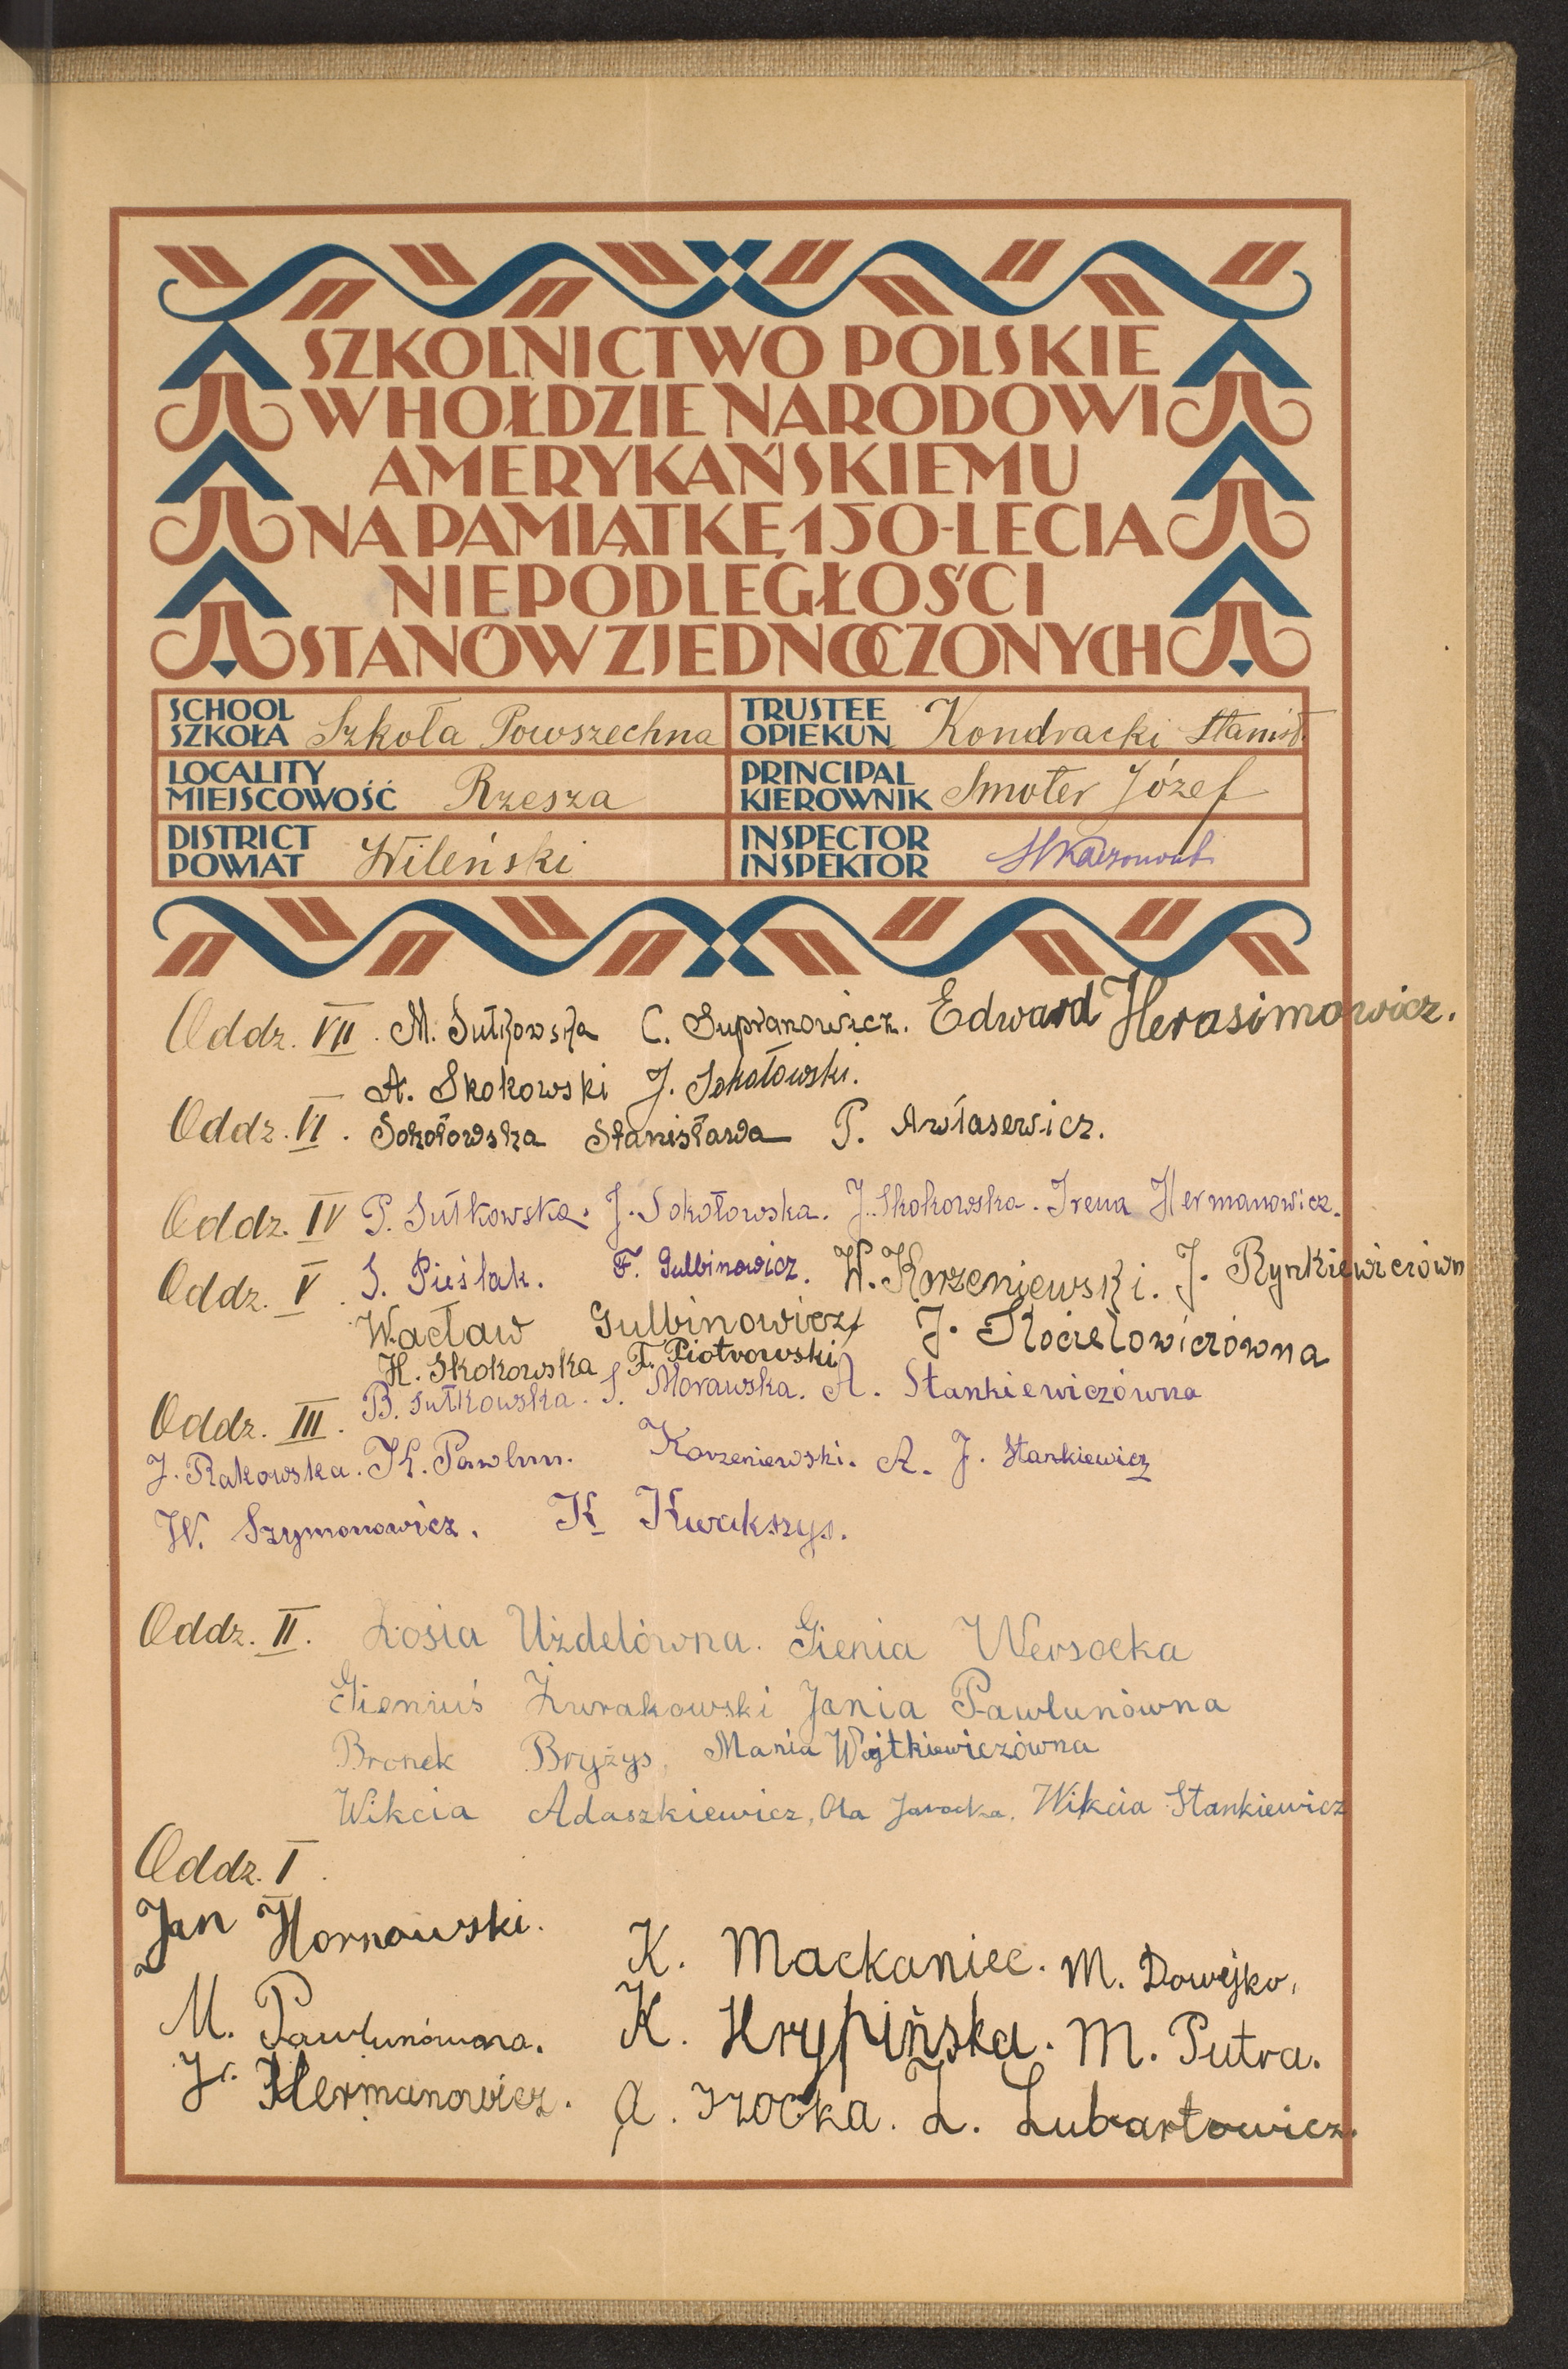 SZKOLNICTWO POLSKIE
W HOŁDZIE NARODOWI
AMERYKAŃSKIEMU
NA PAMIĄTKĘ 150-LECIA
NIEPODLEGŁOŚCI
STANÓW ZJEDNOCZONYCH
SCHOOL SZKOŁA Szkoła Powszechna
TRUSTEE OPIEKUN Kondracki Stanisł.
LOCALITY MIEJSCOWOŚĆ Rzesza
PRINCIPAL KIEROWNIK Smoter Józef
DISTRICT POWIAT Wileński
INSPECTOR INSPEKTOR
Oddz. VII. M. Sutkowska C. Supranowicz. Edward Herasimowicz.
A. Skokowski J. Sokołowski.
Oddz. VI. Sokołowska Stanisława P. Awłasewicz.
Oddz. IV P. Sutkowska. J. Sokołowska. J. Skokowska. Irena Hermanowicz.
Oddz. V. S. Pieślak. F. Gulbinowicz. W. Korzeniewski. J. Rynkiewiczówn
Wacław Gulbinowicz J. Kociełowiczówna
H. Skokowska F. Piotrowski
Oddz. III. B. Sutkowska. S. Morawska. A. Stankiewiczówna
J. Rakowska. K. Pawlun. Korzeniewski. A. J. Stankiewicz
W. Szymonowicz. K Kwakszys.
Oddz. II. Zosia Użdelówna. Gienia Wersocka
Gieniuś Żurakowski Jania Pawlunówna
Bronek Bryżys, Mania Wojtkiewiczówna
Wikcia Adaszkiewicz, Ola Jarocka, Wikcia Stankiewicz
Oddz. I.
Jan Hornowski. K. Mackaniec. M. Dowejko,
M. Pawlunówna. K. Hrypińska. M. Putra.
J. Hermanowicz. A. Izocka. Z. Lubartowicz.